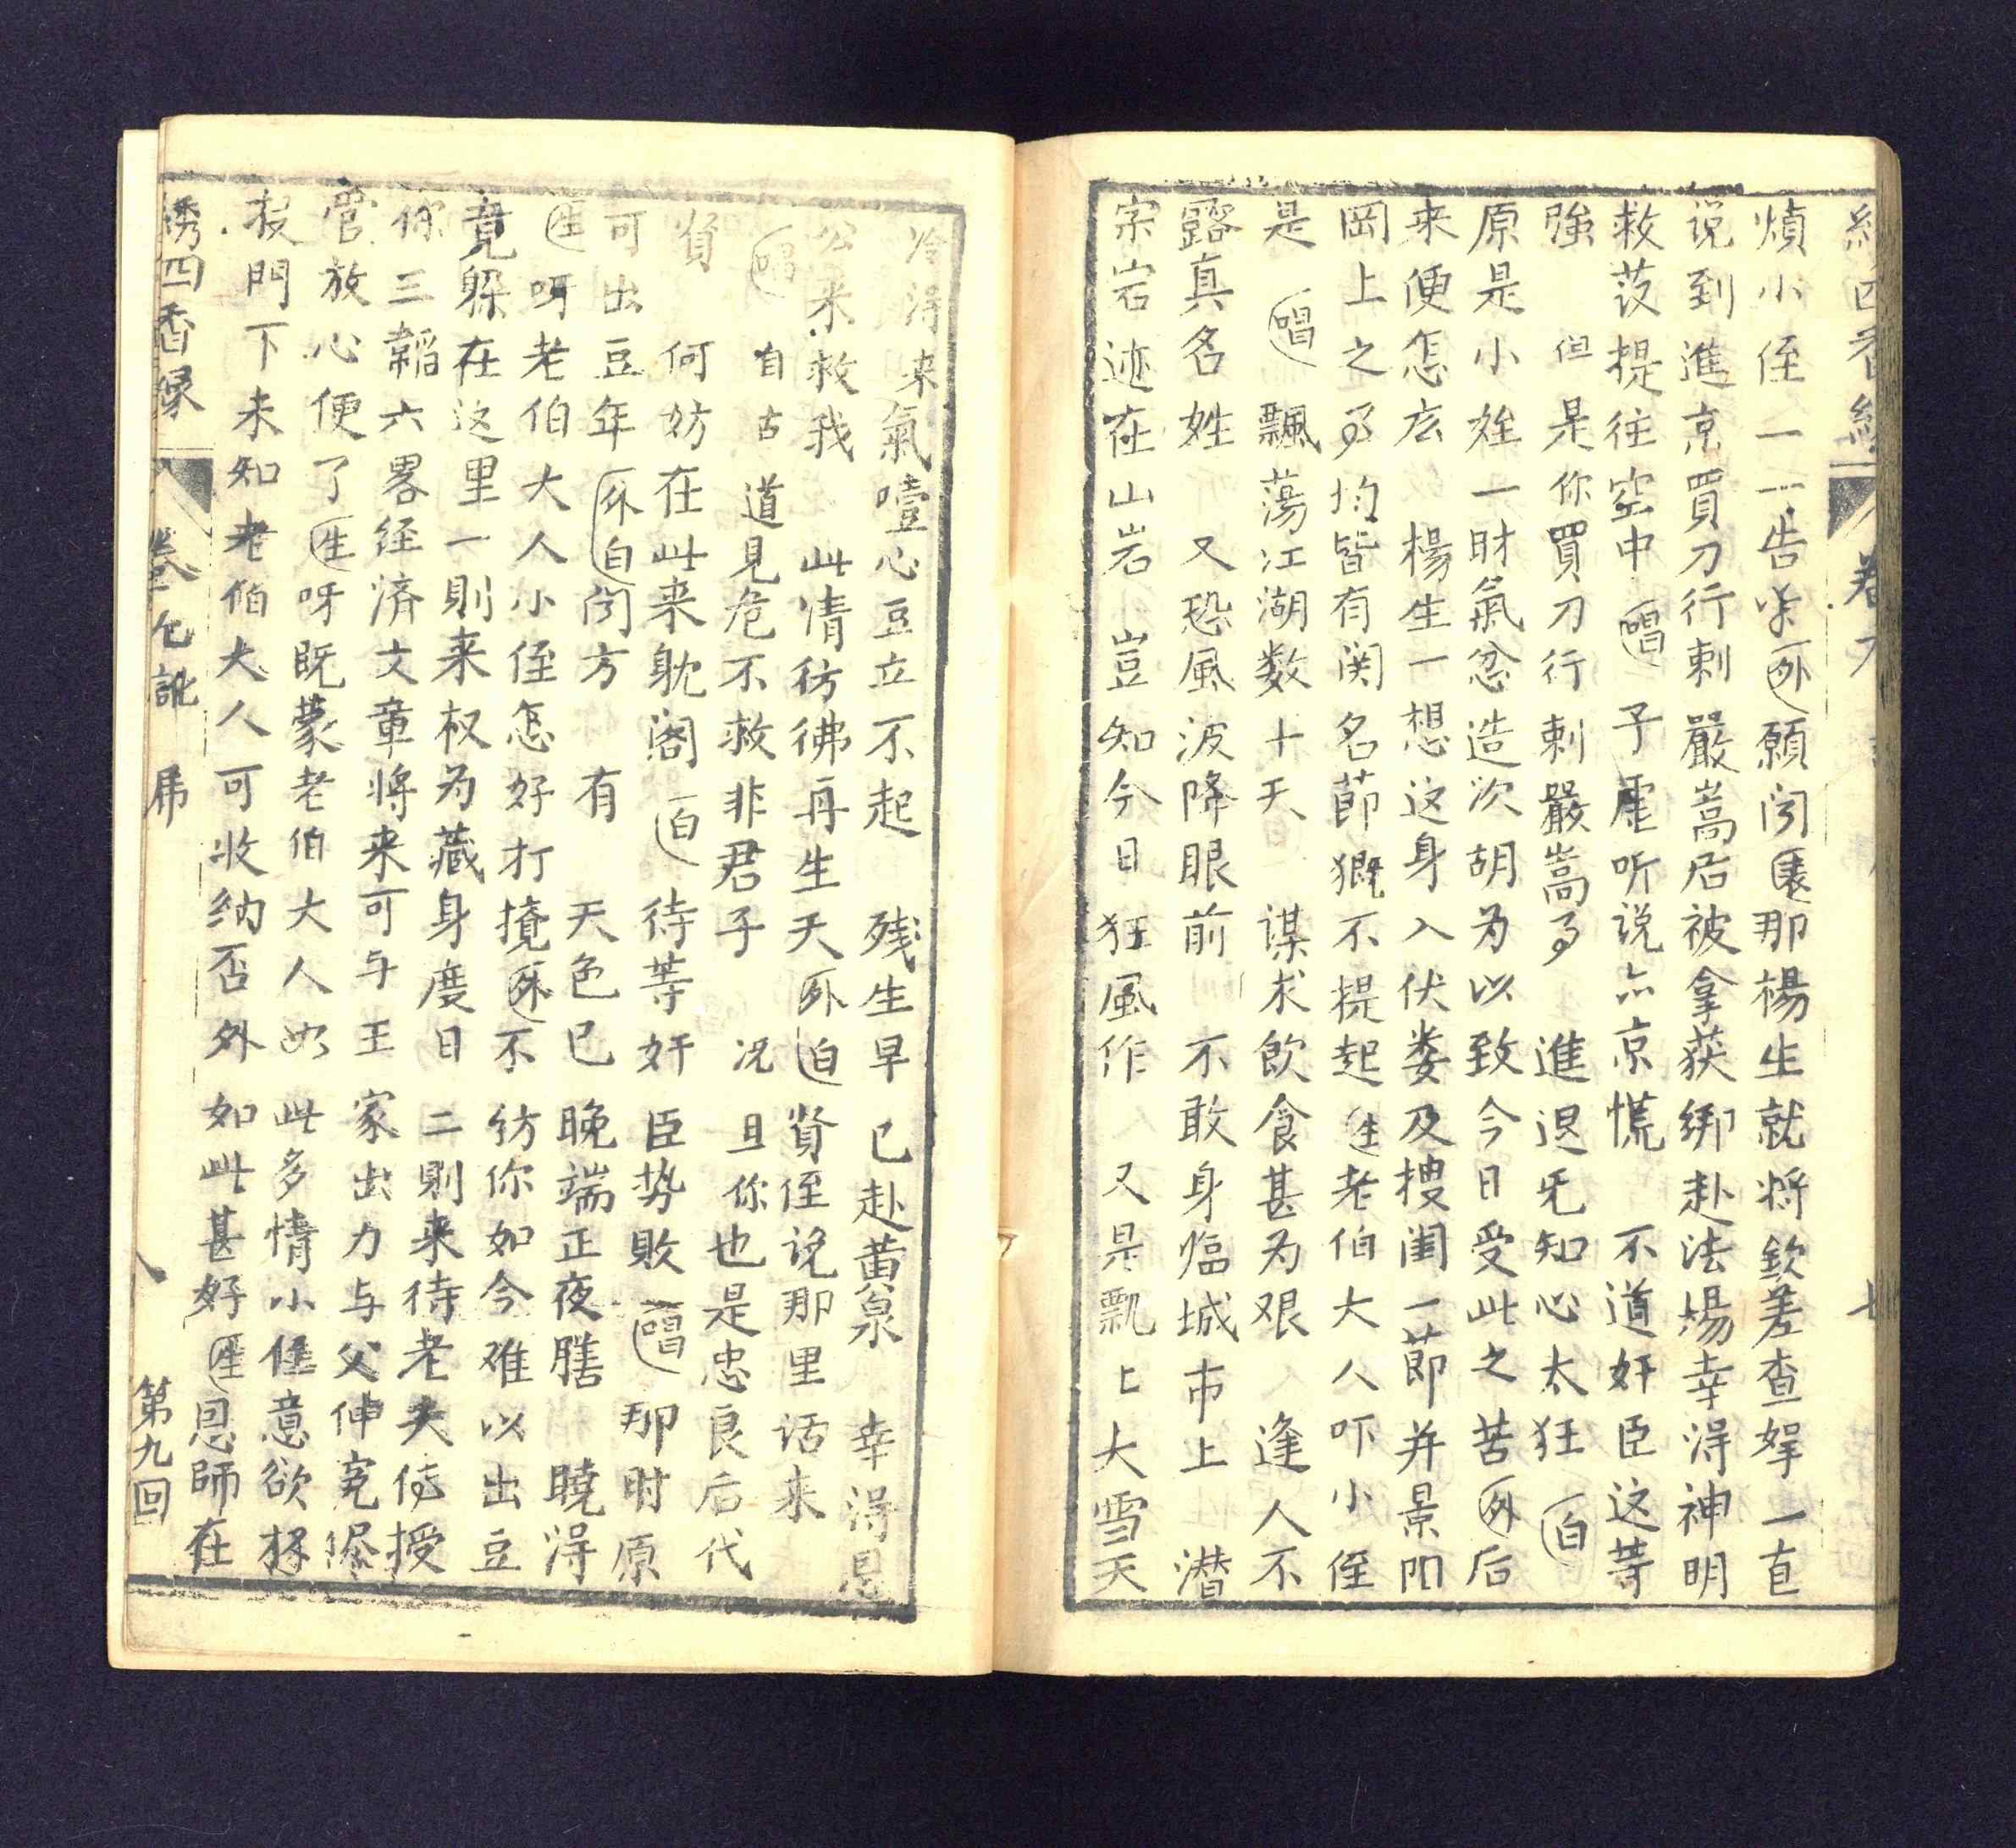 煩小侄一一告来外願闻匿那楊生就将欽差查拏一直
说到進京買刀行刺嚴嵩后被拿获绑赴法場幸淂神明
救茇提往空中唱子虗听说六京慌不道奸臣这䓁
強但是你買刀行刺嚴嵩事進退旡知心太狂白
原是小姪一时氣忿造次胡为以致今日受此之苦外后
来便怎庅楊生一想这身入伏娄及摟閨一節并景阳
岡上之事均皆有関名莭概不提起生老伯大人吓小侄
是唱飄蕩江湖数十天謀求飲食甚为艰逢人不
露真名姓又恐風波降眼前不敢身临城市上潛
宗岩迹在山岩豈知今日狂風作又是飘上大雪天
冷淂来氣噎心豆立不起残生早已赴黄泉幸淂恩
公来救我此情彷彿再生天外白賢侄说那里话来
唱自古道見危不救非君子况且你也是忠良后代
賢何妨在此来躭阁白待等奸臣势敗唱那时原
可出豆年外白闻方有天色已晚端正夜膳曉淂
生呀老伯大人小侄怎好打攪外不彷你如今难以出豆
竟躲在这里一則来权为藏身度日二則来待老夫傳授
你三韜六畧经濟文章将来可与王家出力与父伸寃
管放心便了生呀既蒙老伯大人如此多情小侄意欲拜
投門下未知老伯大人可收纳否外如此甚好生恩師在
绣四香緣
八
第九回